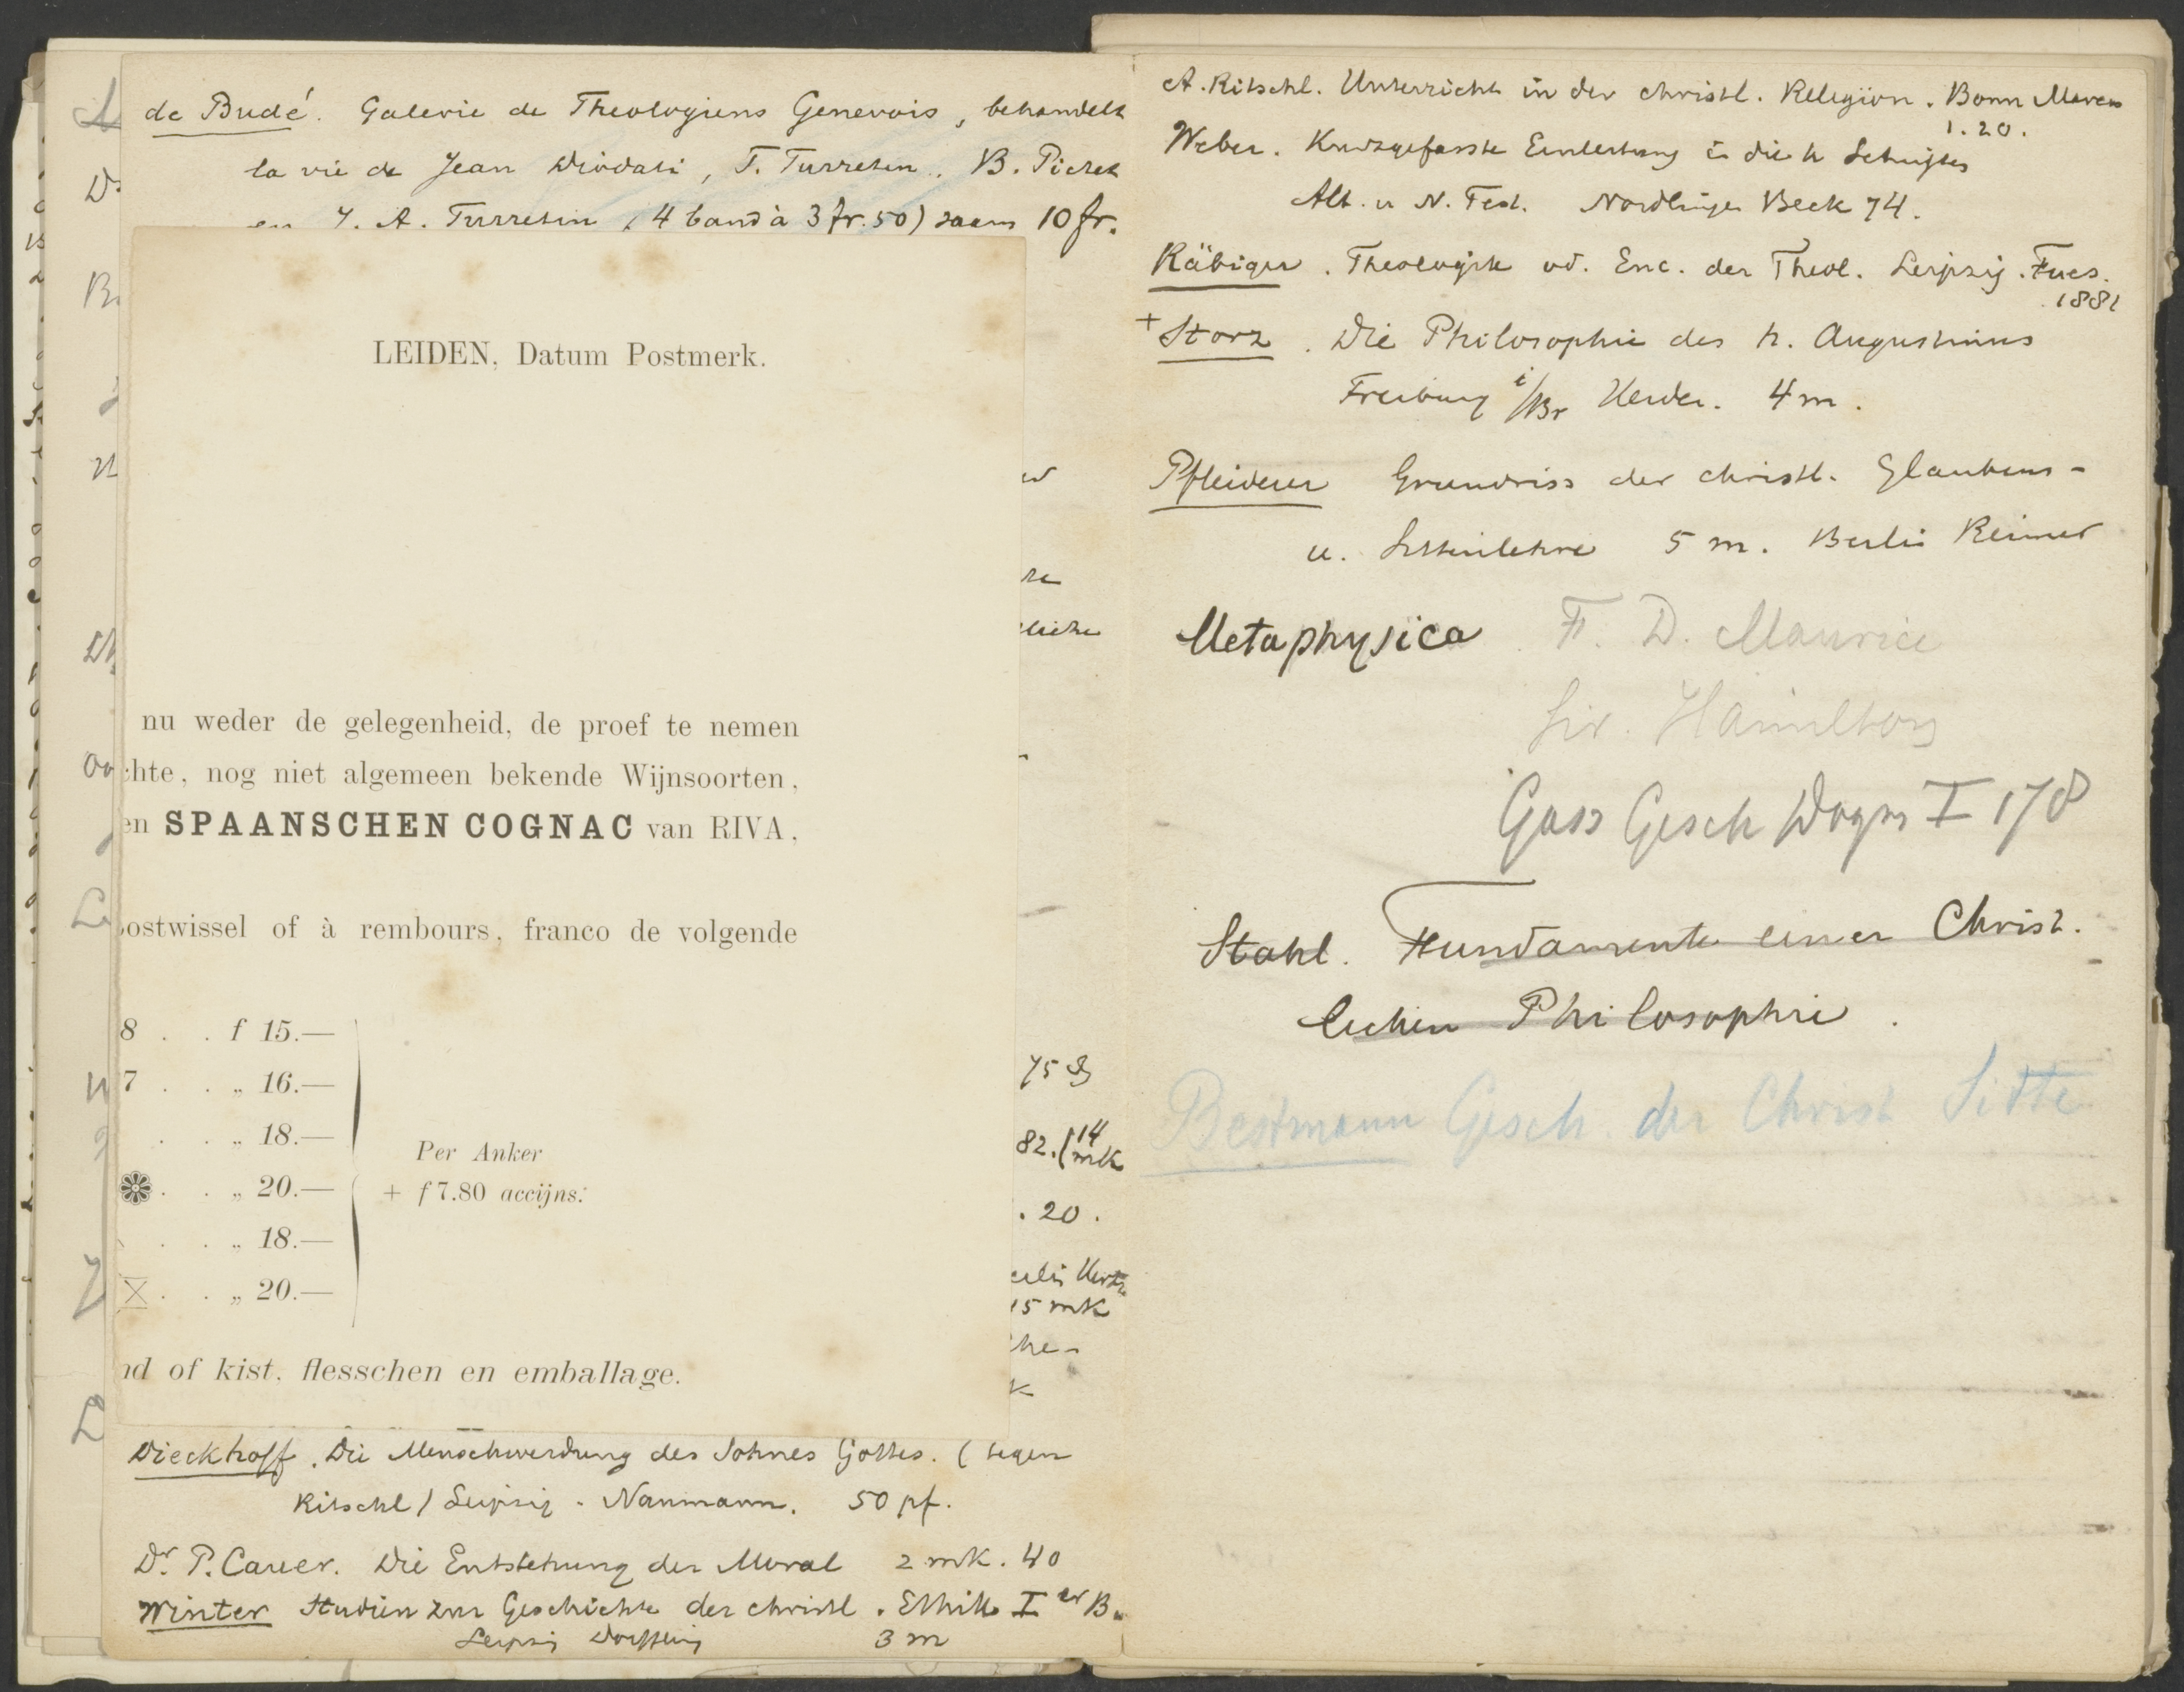 de Budé. Galerie de Theologiens Genevois, behandelt
la vie de Jean Diodati, F. Turretin, B. Pictet
en J. A. Turretin (4 band à 3 fr. 50) saam 10 fr.
LEIDEN, Datum Postmerk.
nu weder de gelegenheid, de proef te nemen
chte, nog niet algemeen bekende Wijnsoorten,
en SPAANSCHEN COGNAC van RIVA,
ostwissel of à rembours, franco de volgende
8 . . f 15.—
7 . . „ 16.—
. . „ 18.—
. . „ 20.—
. . „ 18.—
X . . „ 20.—
Per Anker
+ f 7.80 accijns.
nd of kist, flesschen en emballage.
75
82. (14 mk
. 20.
15 mk
Dieckhoff. Die Menschwerdung des Sohnes Gottes. (tegen
Ritschl) Leipzig. Naumann. 50 pf.
Dr P. Carer. Die Entstehung der Moral 2 mk. 40
Winter Studien zur Geschichte der christl. Ethik I er B.
Leipzig Dörffling 3 m
A. Ritschl. Unterricht in der christl. Religion. Bonn Marcus
1.20.
Weber. Kurzgefasste Einleitung in die h Schriften
Alt. u N. Test. Nordlingen Beck 74.
Räbiger. Theologik od. Enc. der Theol. Leipzig. Fues.
1881
+ Storz. Die Philosophie des h. Augustinus
Freiburg i/Br Herder. 4 m.
Pfleiderer Grundriss der christl. Glaubens-
u. Sittenlehre 5 m. Berlin Reimer
Metaphysica F. D. Maurice
Sir. Hamilton
Gass Gesch Dogm I 178
Stahl. Fundamente einer Christ.
lichen Philosophie.
Bestmann Gesch. der Christ Sitte